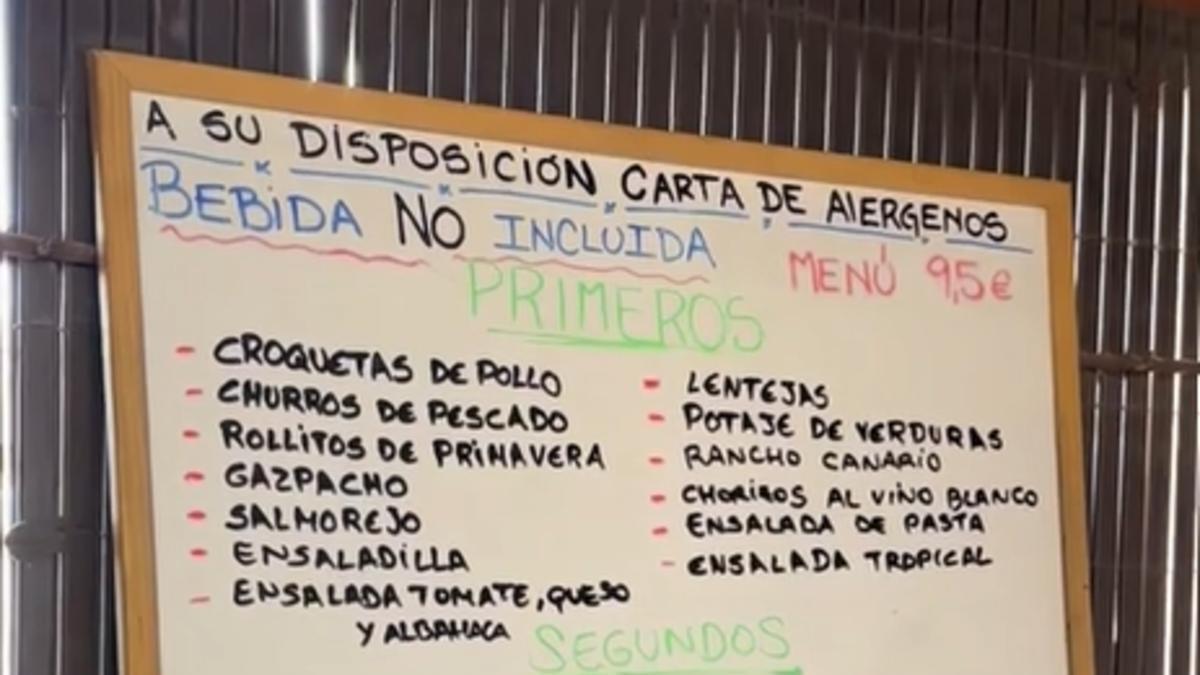 A SU DISPOSICIÓN CARTA DE AlERGENOS
BEBIDA NO INCLUIDA
MENÚ 9,5€
PRIMEROS
- CROQUETAS DE POLLO
- CHURROS DE PESCADO
- ROLLITOS DE PRIMAVERA
- GAZPACHO
- SALMOREJO
- ENSALADILLA
- ENSALADA TOMATE, QUESO
Y ALBAHACA
- LENTEJAS
- POTAJE DE VERDURAS
- RANCHO CANARIO
- CHORIZOS AL VINO BLANCO
- ENSALADA DE PASTA
- ENSALADA TROPICAL
SEGUNDOS